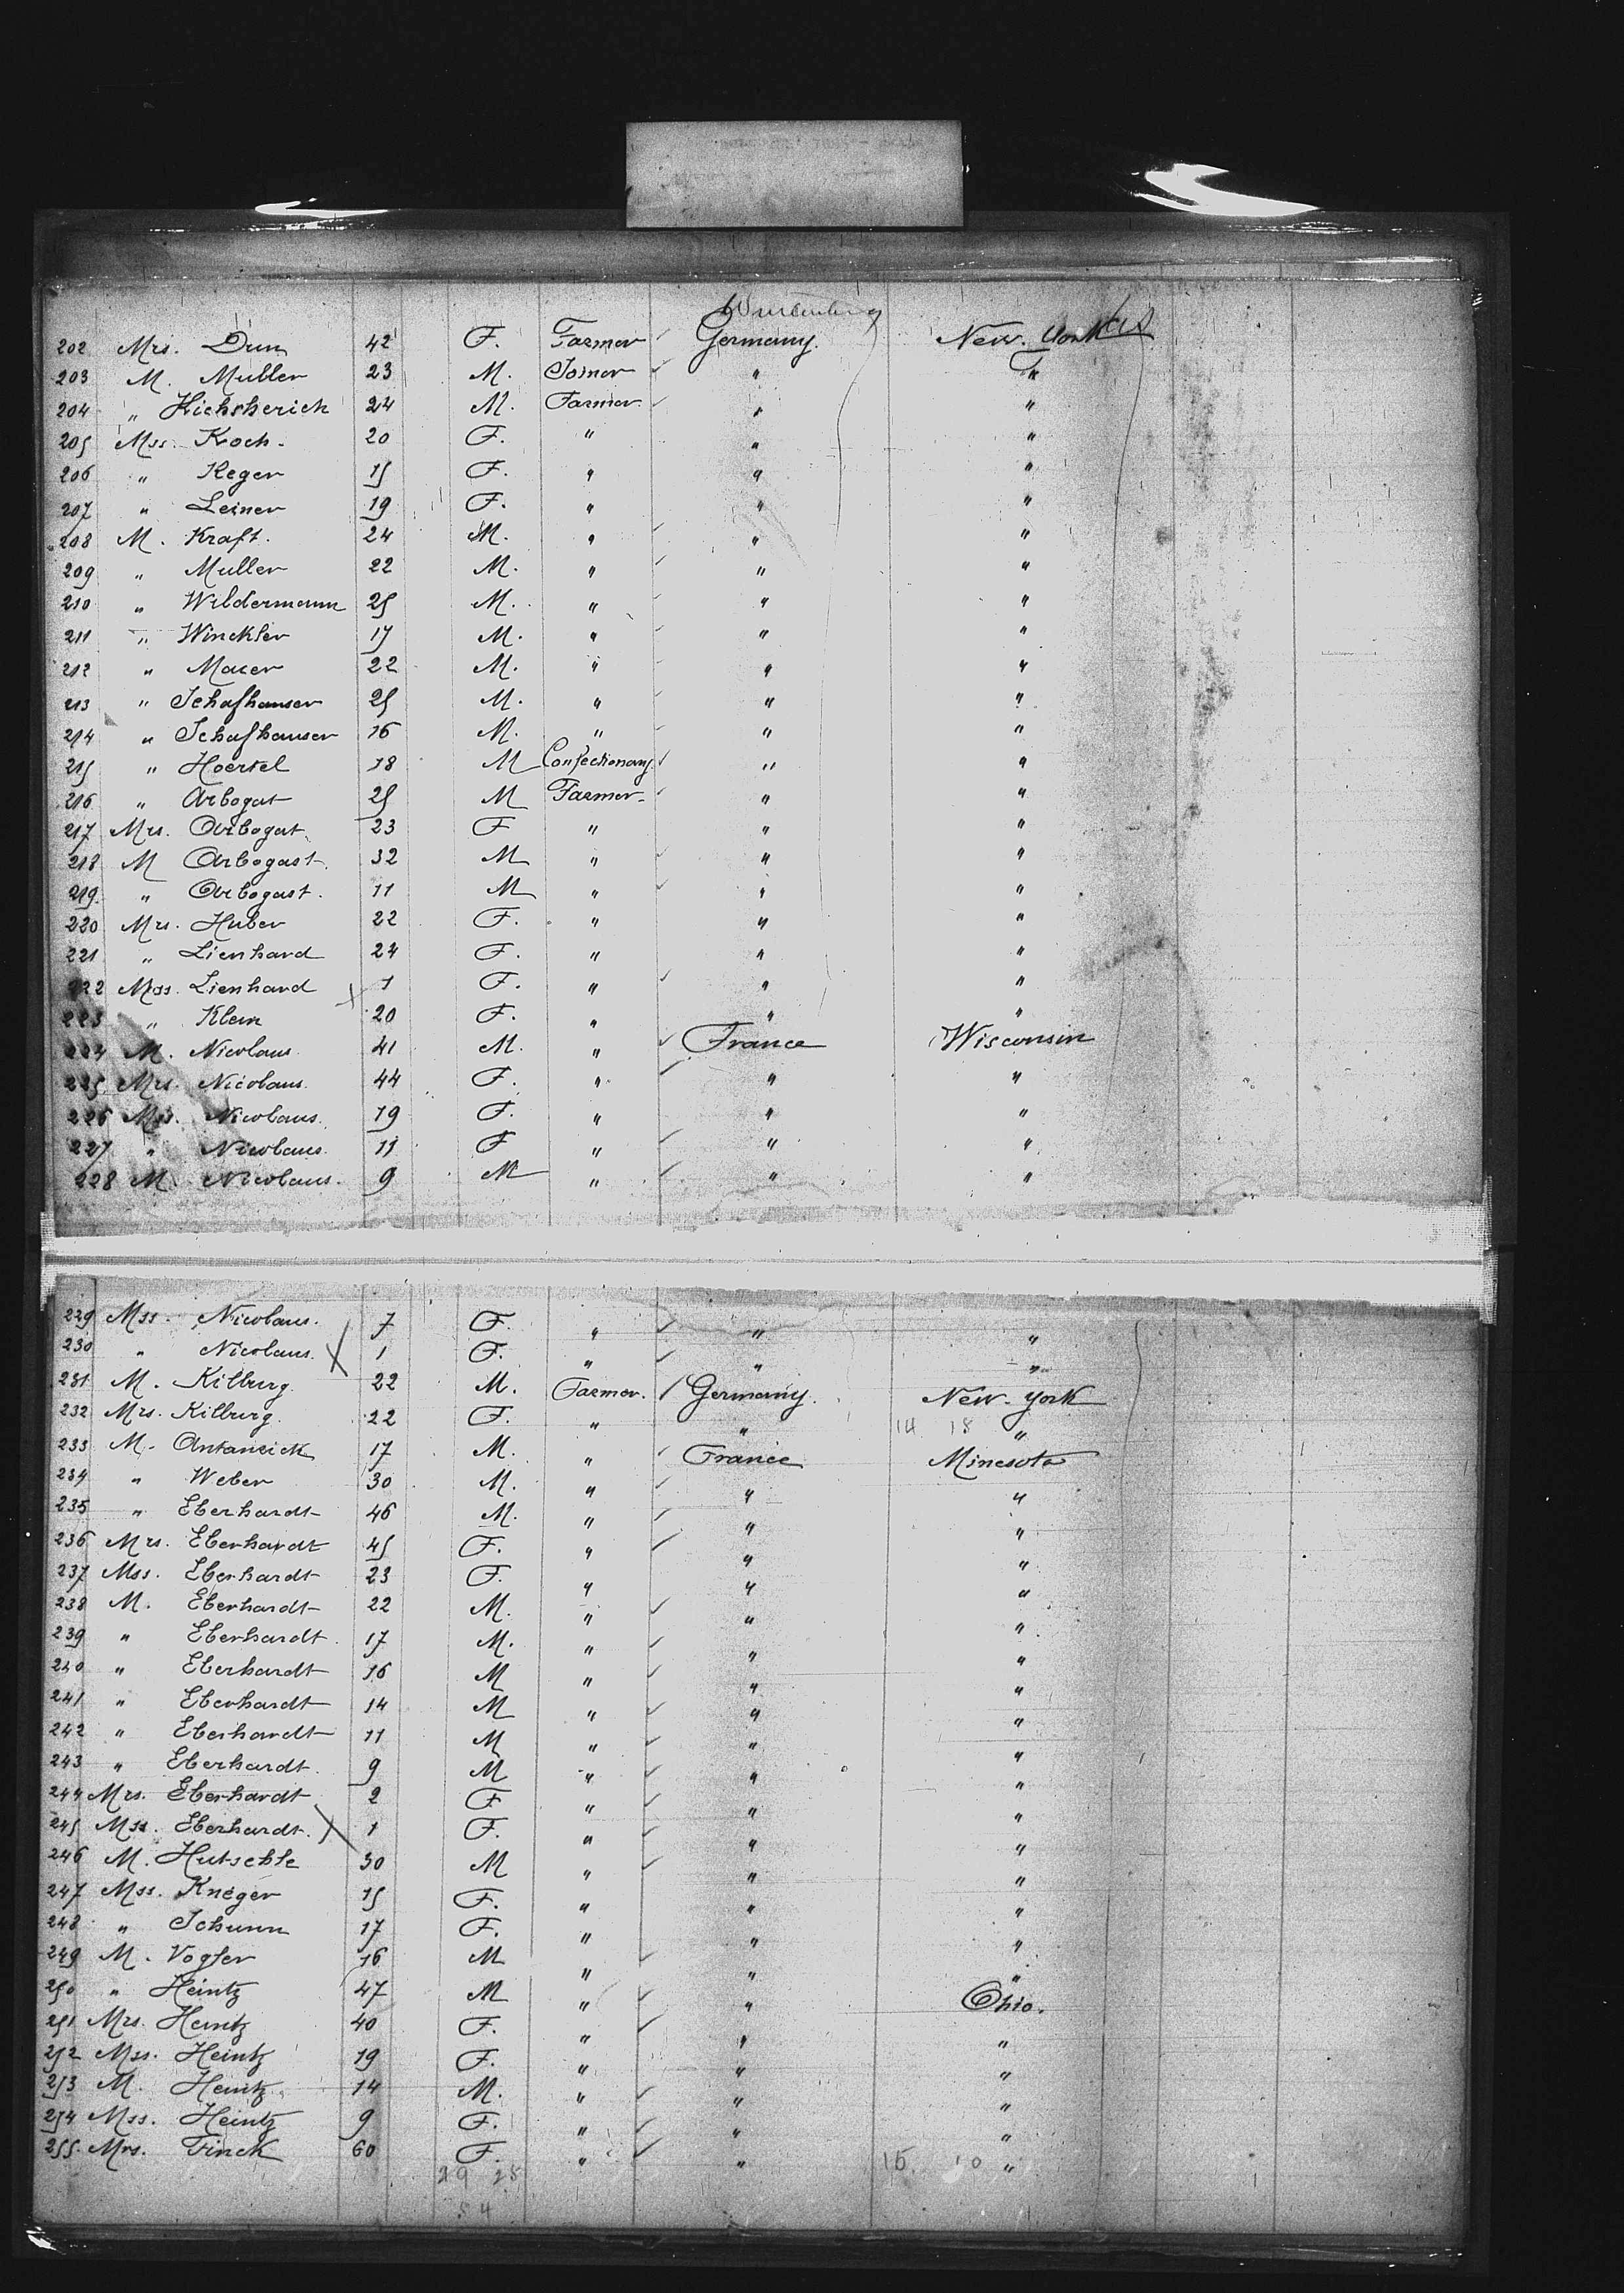 Wurtemberg
202 Mrs. Dun 42 F. Farmer Germany. New-York
203 M. Muller 23 M. Joiner " "
204 " 24 M. Farmer. " "
205 Mss. Koch. 20 F. " " "
206 " Reger 15 F. " " "
207 " Leiner 19 F. " " "
208 M. Kraft. 24 M. " " "
209 " Muller 22 M. " " "
210 " Wildermann 25 M. " " "
211 " Winckler 17 M. " " "
212 " Maier 22 M. " " "
213 " Schafhauser 25 M. " " "
214 " Schafhauser 16 M. " " "
215 " Hoertel 18 M Confectionary " "
216 " Arbogat 25 M Farmer. " "
217 Mrs. Arbogat 23 F " " "
218 M Arbogast. 32 M " " "
219. " Arbogast. 11 M " " "
220 Mrs. Huber 22 F. " " "
221 " Lienhard 24 F. " " "
222 Mss. Lienhard 1 F. " " "
223 " Klein 20 F. " " "
224 M. Nicolaus 41 M. " France Wisconsin
225 Mrs. Nicolaus. 44 F. " " "
226 Mss. Nicolaus. 19 F. " " "
227 " Nicolaus. 11 F " " "
228 M. Nicolaus. 9 M " " "
229 Mss. Nicolaus. 7 F. " " "
230 " Nicolaus. X 1 F. " " "
231 M. Kilburg. 22 M. Farmer. Germany. New-York
232 Mrs. Kilburg. 22 F. " " 14 18 "
233 M. Antanrick 17 M. " France Minesota
234 " Weber 30 M. " " "
235 " Eberhardt 46 M. " " "
236 Mrs. Eberhardt 45 F. " " "
237 Mss. Eberhardt 23 F. " " "
238 M. Eberhardt 22 M. " " "
239 " Eberhardt. 17 M. " " "
240 " Eberhardt 16 M " " "
241 " Eberhardt 14 M " " "
242 " Eberhardt 11 M " " "
243 " Eberhardt. 9 M " " "
244 Mrs. Eberhardt 2 F " " "
245 Mss. Eberhardt. X 1 F. " " "
246 M. Hutschle 30 M " " "
247 Mss. Krieger 15 F. " " "
248 " Schunn 17 F. " " "
249 M. Vogler 16 M " " "
250 " Heintz 47 M " " Ohio.
251 Mrs. Heintz 40 F. " " "
252 Mss. Heintz 19 F. " " "
253 M. Heintz. 14 M. " " "
254 Mss. Heintz 9 F. " " "
255. Mrs. Finck 60 F. " " "